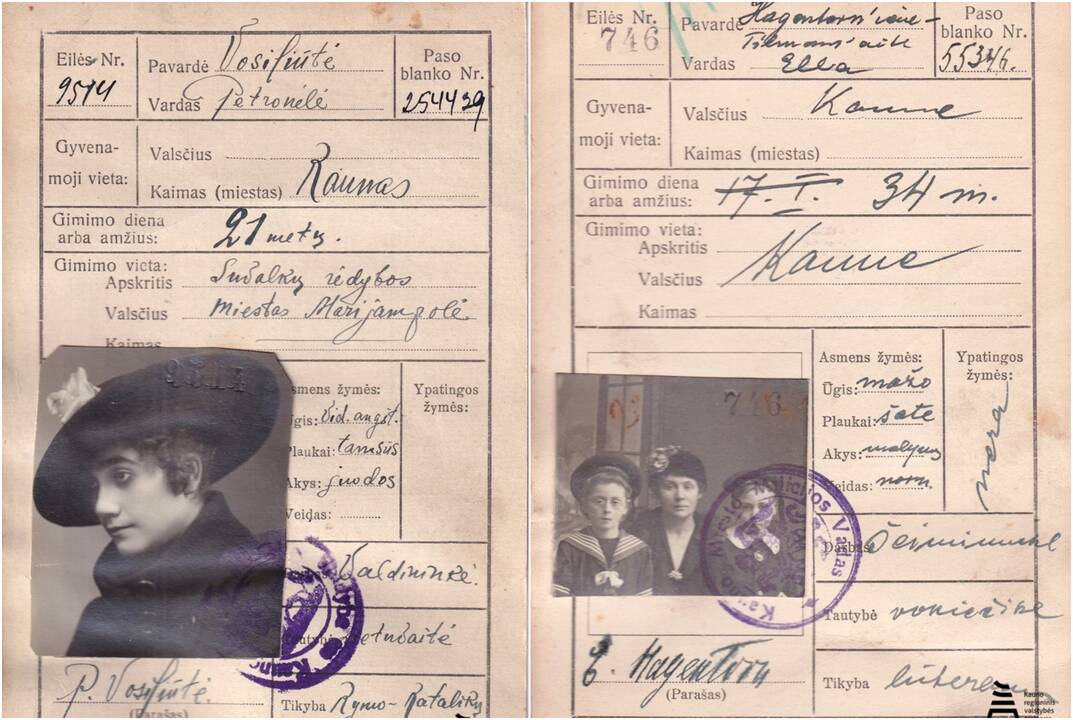 Eilės Nr.
9514
Pavardė Vosiliūtė
Vardas Petronėlė
Paso
blanko Nr.
254439
Gyvena-
moji vieta:
Valsčius
Kaimas (miestas) Kaunas
Gimimo diena
arba amžius: 21 metų.
Gimimo vieta:
Apskritis Suvalkų rėdybos
Valsčius Miestas Marijampolė
Kaimas
9514
smens žymės:
gis: vid. augšt.
laukai: tamsūs
kys: juodos
Veidas:
Ypatingos
žymės:
Valdininkė.
P. Vosiliūtė.
(Parašas)
Tikyba Rymo-Katalikų
Eilės Nr.
746
Pavardė
Vardas Ella
Paso
blanko Nr.
55346.
Gyvena-
moji vieta:
Valsčius Kaune
Kaimas (miestas)
Gimimo diena
arba amžius: 17. I. 34 m.
Gimimo vieta:
Apskritis
Valsčius Kaune
Kaimas
746
Asmens žymės:
Ūgis: mažo
Plaukai: šatė
Akys:
Veidas: norm.
Ypatingos
žymės:
nėra
Miesto Milicijos Vadas
Darbas
Tautybė vokietikė
E. Hagentorn
(Parašas)
Tikyba
Kauno
regioninis
valstybės